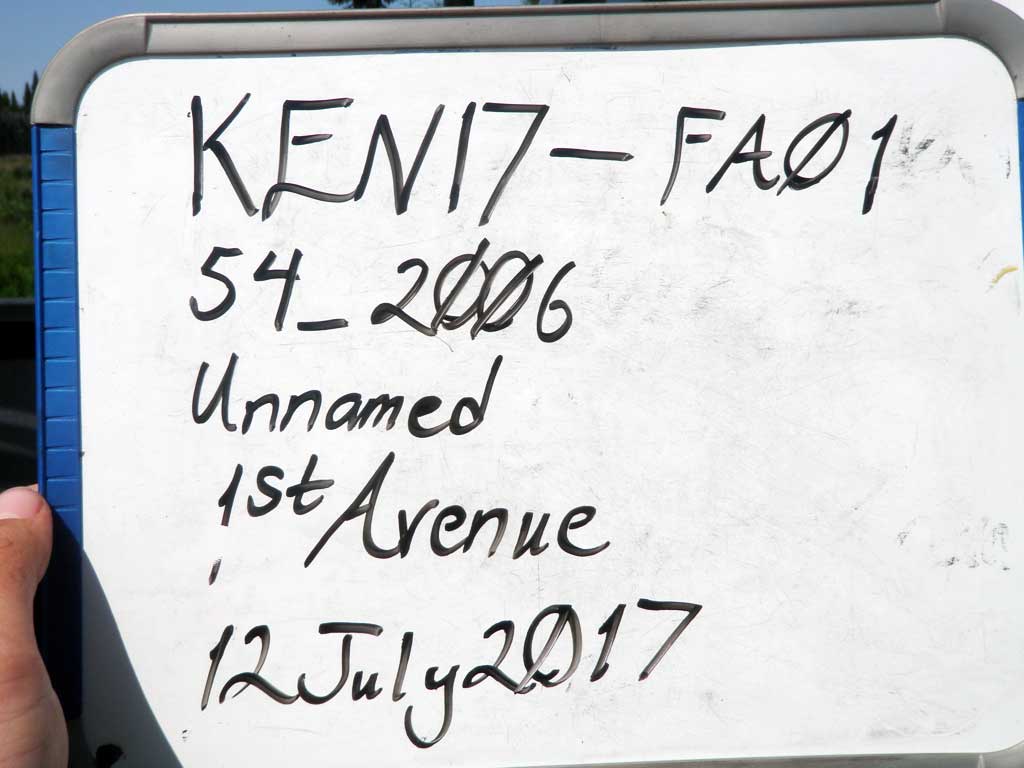 KEN17-FA01
54_2006
Unnamed
1st Avenue
12 July 2017